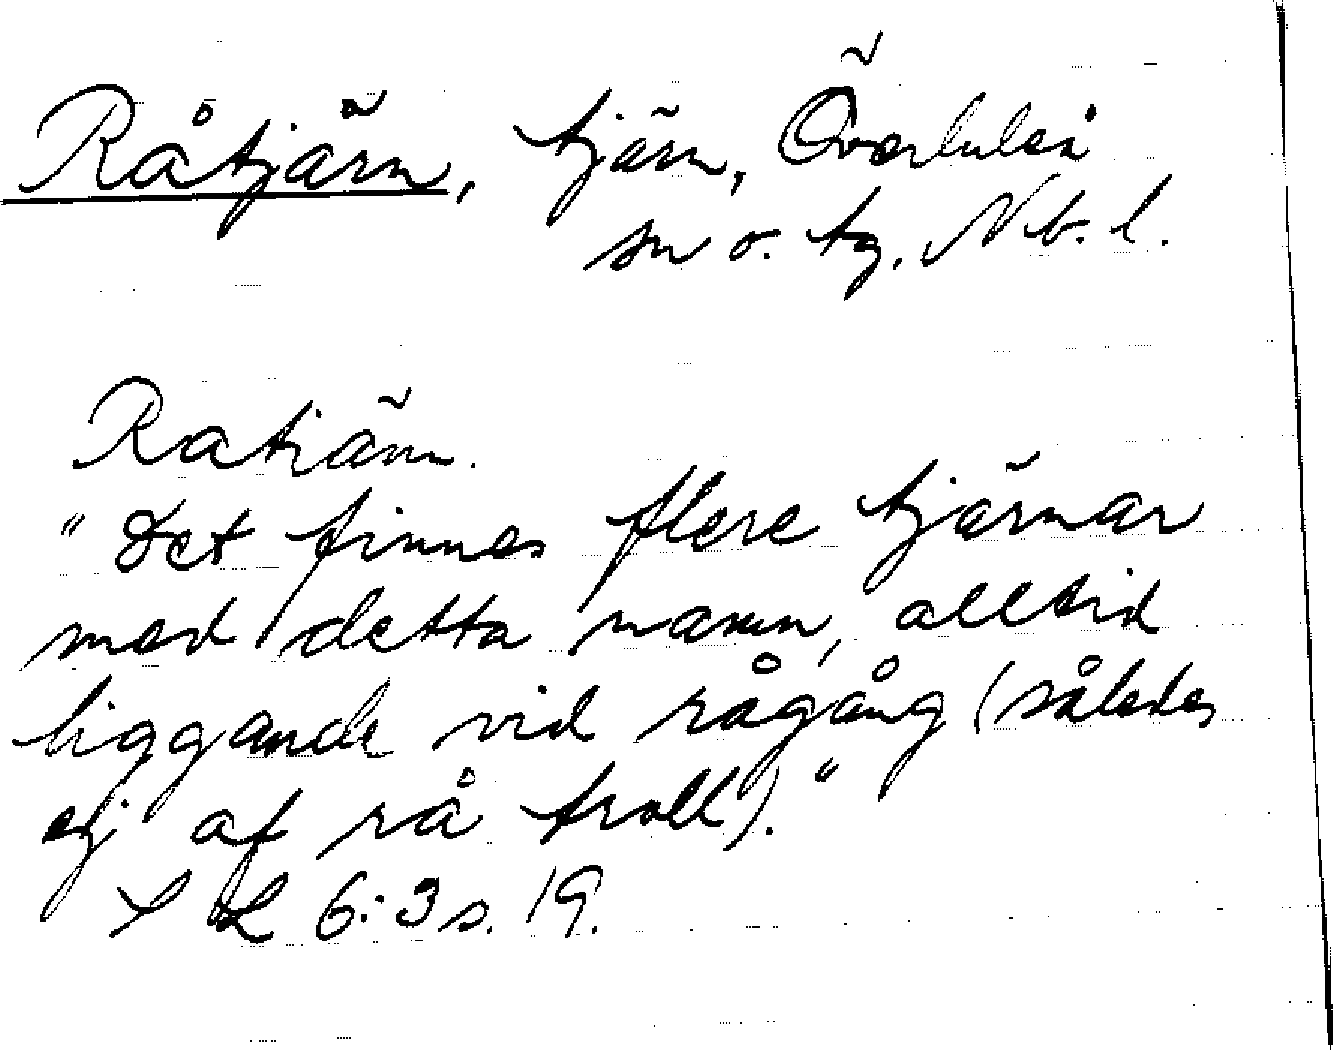 Råtjärn, tjärn, Överluleå
sn o. tg. Nb. l.
Ratiärn.
"Det finnes flere tjärnar
med detta namn, alltid
liggande vid rågång (således
ej af rå troll)."
S L 6:3 s. 19.